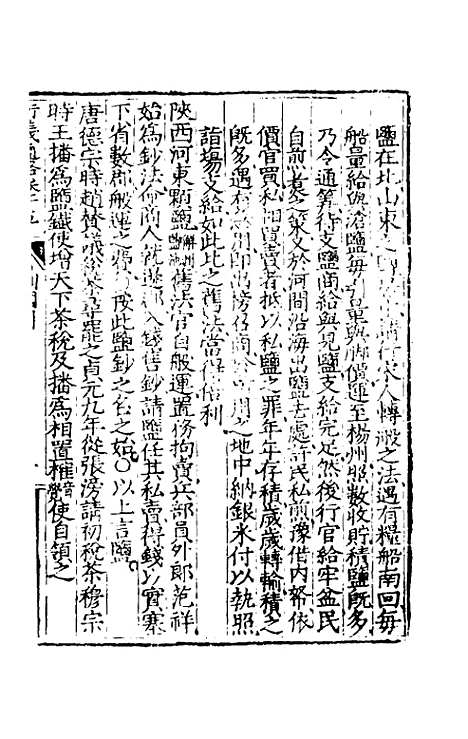 鹽在北山東之請行宋人轉般之法遇有糧船南回每
船量給與滄鹽每引量與脚價運至楊州照數收貯積鹽既多
乃令通筭待支鹽商給與見鹽支給完足然後行官給牢盆民
自煎煑之策又於河間沿海出鹽去處許民私煎豫借內帑依
價官買私相買賣者抵以私鹽之罪年年存積歲歲轉輸積之
既多遇有急用即出榜召商於用之地中納銀米付以執照
詣塲支給如此比之舊法當得倍利
陝西河東顆鹽舊法官自般運置務拘賣兵部員外郎范祥
始為鈔法令商人就邊郡入錢售鈔請鹽任其私賣得錢以實塞
下省數郡般運之勞按此鹽鈔之名之始○以上言鹽
唐德宗時趙贊議稅茶尋罷之貞元九年從張滂請初稅茶穆宗
時王播為鹽鐵使增天下茶稅及播為相置榷茶使自領之